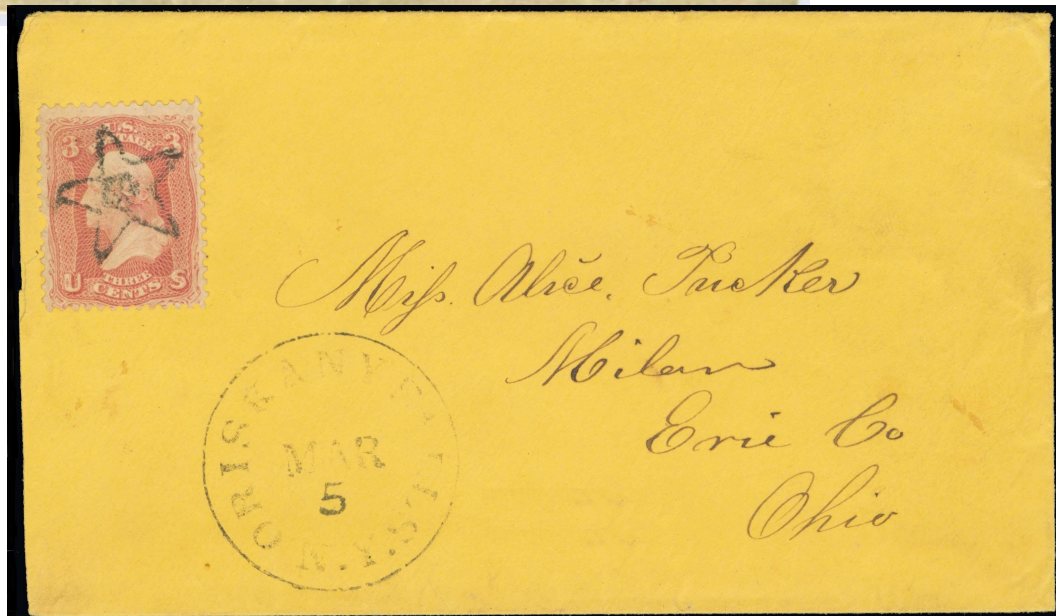 3 U.S. POSTAGE 3
U THREE CENTS S
Miss. Alice. Tucker
Milan
Erie Co
Ohio
ORISKANY FALLS. N.Y.
MAR
5